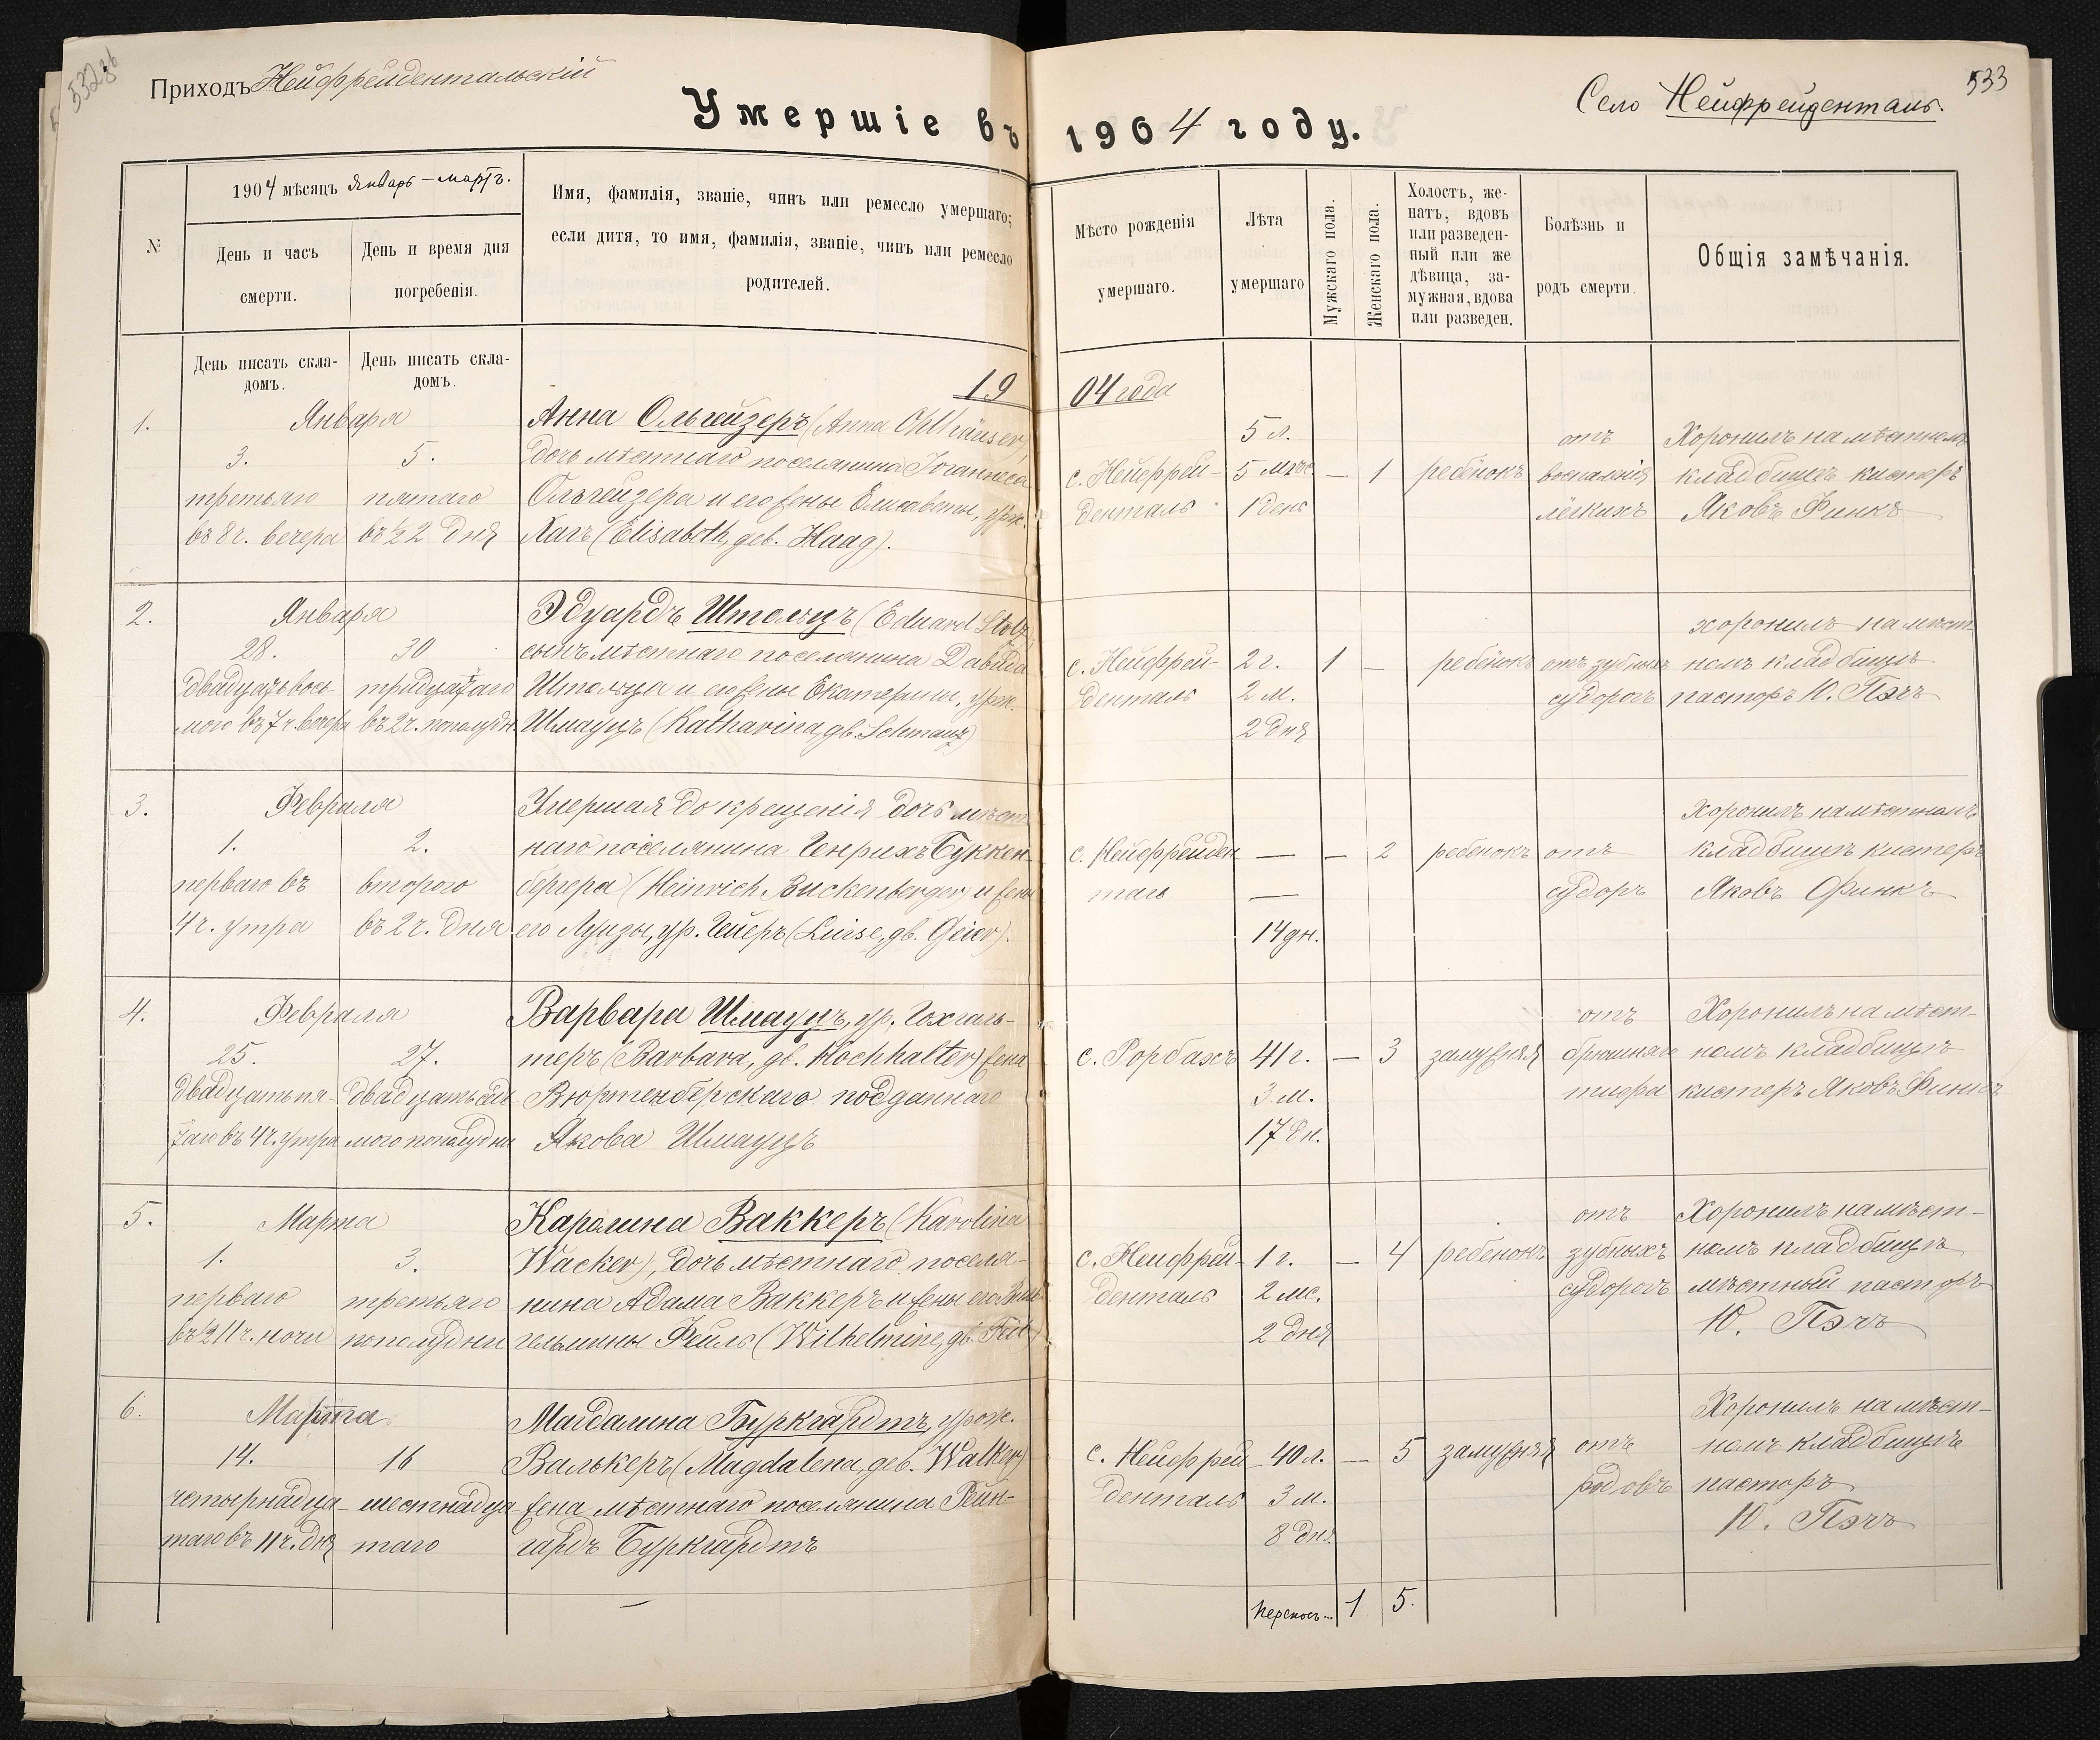 532об
Приходъ Нейфрейдентальскій
Умершіе въ 1904 году.
Село Нейфрейденталь.
533
№
1904 мѣсяцъ Январь – мартъ.
День и часъ смерти.
День и время дня погребенія.
Имя, фамилія, званіе, чинъ или ремесло умершаго;
если дитя, то имя, фамилія, званіе, чинъ или ремесло
родителей.
Мѣсто рожденія
умершаго.
Лѣта
умершаго
Мужскаго пола.
Женскаго пола.
Холостъ, же-
натъ, вдовъ
или разведен-
ный или же
дѣвица, за-
мужная, вдова
или разведен.
Болѣзнь и
родъ смерти.
Общія замѣчанія.
День писать скла-
домъ.
День писать скла-
домъ.
1904 года
1.
Января
3.
третьяго
въ 8 ч. вечера
5.
пятаго
въ ½2 дня
Анна Ольгейзеръ (Anna Ohlhäuser)
дочь мѣстнаго поселянина Іоганнеса
Ольгейзера и его жены Елисаветы, урж.
Хагъ (Elisabeth, geb. Haag).
с. Нейфрей-
денталь
5 л.
5 мѣс
1 день
—
1
ребёнокъ
отъ
воспаленія
лёгкихъ
Хоронилъ на мѣстномъ
кладбищѣ кистеръ
Яковъ Финкъ
2.
Января
28.
двадцатьвось-
мого въ 7 ч. вечера
30
тридцатаго
въ 2 ч. пополудн.
Эдуардъ Штольцъ (Eduard Stolz)
сынъ мѣстнаго поселянина Давида
Штольца и его жены Екатерины, урж.
Шмауцъ (Katharina, gb. Schmauz)
с. Нейфрей-
денталь
2 г.
2 м.
2 дня
1
—
ребёнокъ
отъ зубныхъ
судорогъ
хоронилъ на мѣст-
номъ кладбищѣ
пасторъ Ю. Пэчъ
3.
Февраля
1.
перваго въ
4 ч. утра
2.
второго
въ 2 ч. дня
Умершая до крещенія дочь мѣст-
наго поселянина Генрихъ Буккен-
бергера (Heinrich Buckenberger) и жены
его Луизы, ур. Гейеръ (Luise, gb. Geier).
с. Нейфрейден
таль
—
—
14 дн.
—
2
ребенокъ
отъ
судоръ
Хоронилъ на мѣстномъ
кладбищѣ кистеръ
Яковъ Финкъ
4.
Февраля
25.
двадцатьпя-
таго въ 4 ч. утра
27.
двадцатьседь-
мого пополудни
Варвара Шмауцъ, ур. Гохгаль-
теръ (Barbara, gb. Hochhalter) жена
Вюртембергскаго подданнаго
Якова Шмауцъ
с. Рорбахъ
41 г.
3 м.
17 дн.
—
3
замужняя
отъ
брюшнаго
тифа
Хоронилъ на мѣст-
номъ кладбищѣ
кистеръ Яковъ Финкъ
5.
Марта
1.
перваго
въ ½11 ч. ночи
3.
третьяго
пополудни
Каролина Ваккеръ (Karolina
Wacker), дочь мѣстнаго поселя-
нина Адама Ваккеръ и жены его Виль-
гельмины Фейль (Wilhelmine, gb. Feil)
с. Нейфрей-
денталь
1 г.
2 мс.
2 дня
—
4
ребенокъ
отъ
зубныхъ
судорогъ
Хоронилъ на мѣст-
номъ кладбищѣ
мѣстный пасторъ
Ю. Пэчъ
6.
Марта
14.
четырнадца-
таго въ 11 ч. дня
16
шестнадца-
таго
Магдалина Буркгардтъ, урож.
Валькеръ (Magdalena, geb. Walker)
жена мѣстнаго поселянина Рейн-
гардъ Буркгардтъ
с. Нейфрей
денталь
40 л.
3 м.
8 дн.
—
5
замужняя
отъ
родовъ
Хоронилъ на мѣст-
номъ кладбищѣ
пасторъ
Ю. Пэчъ
—
Переносъ...
1
5.